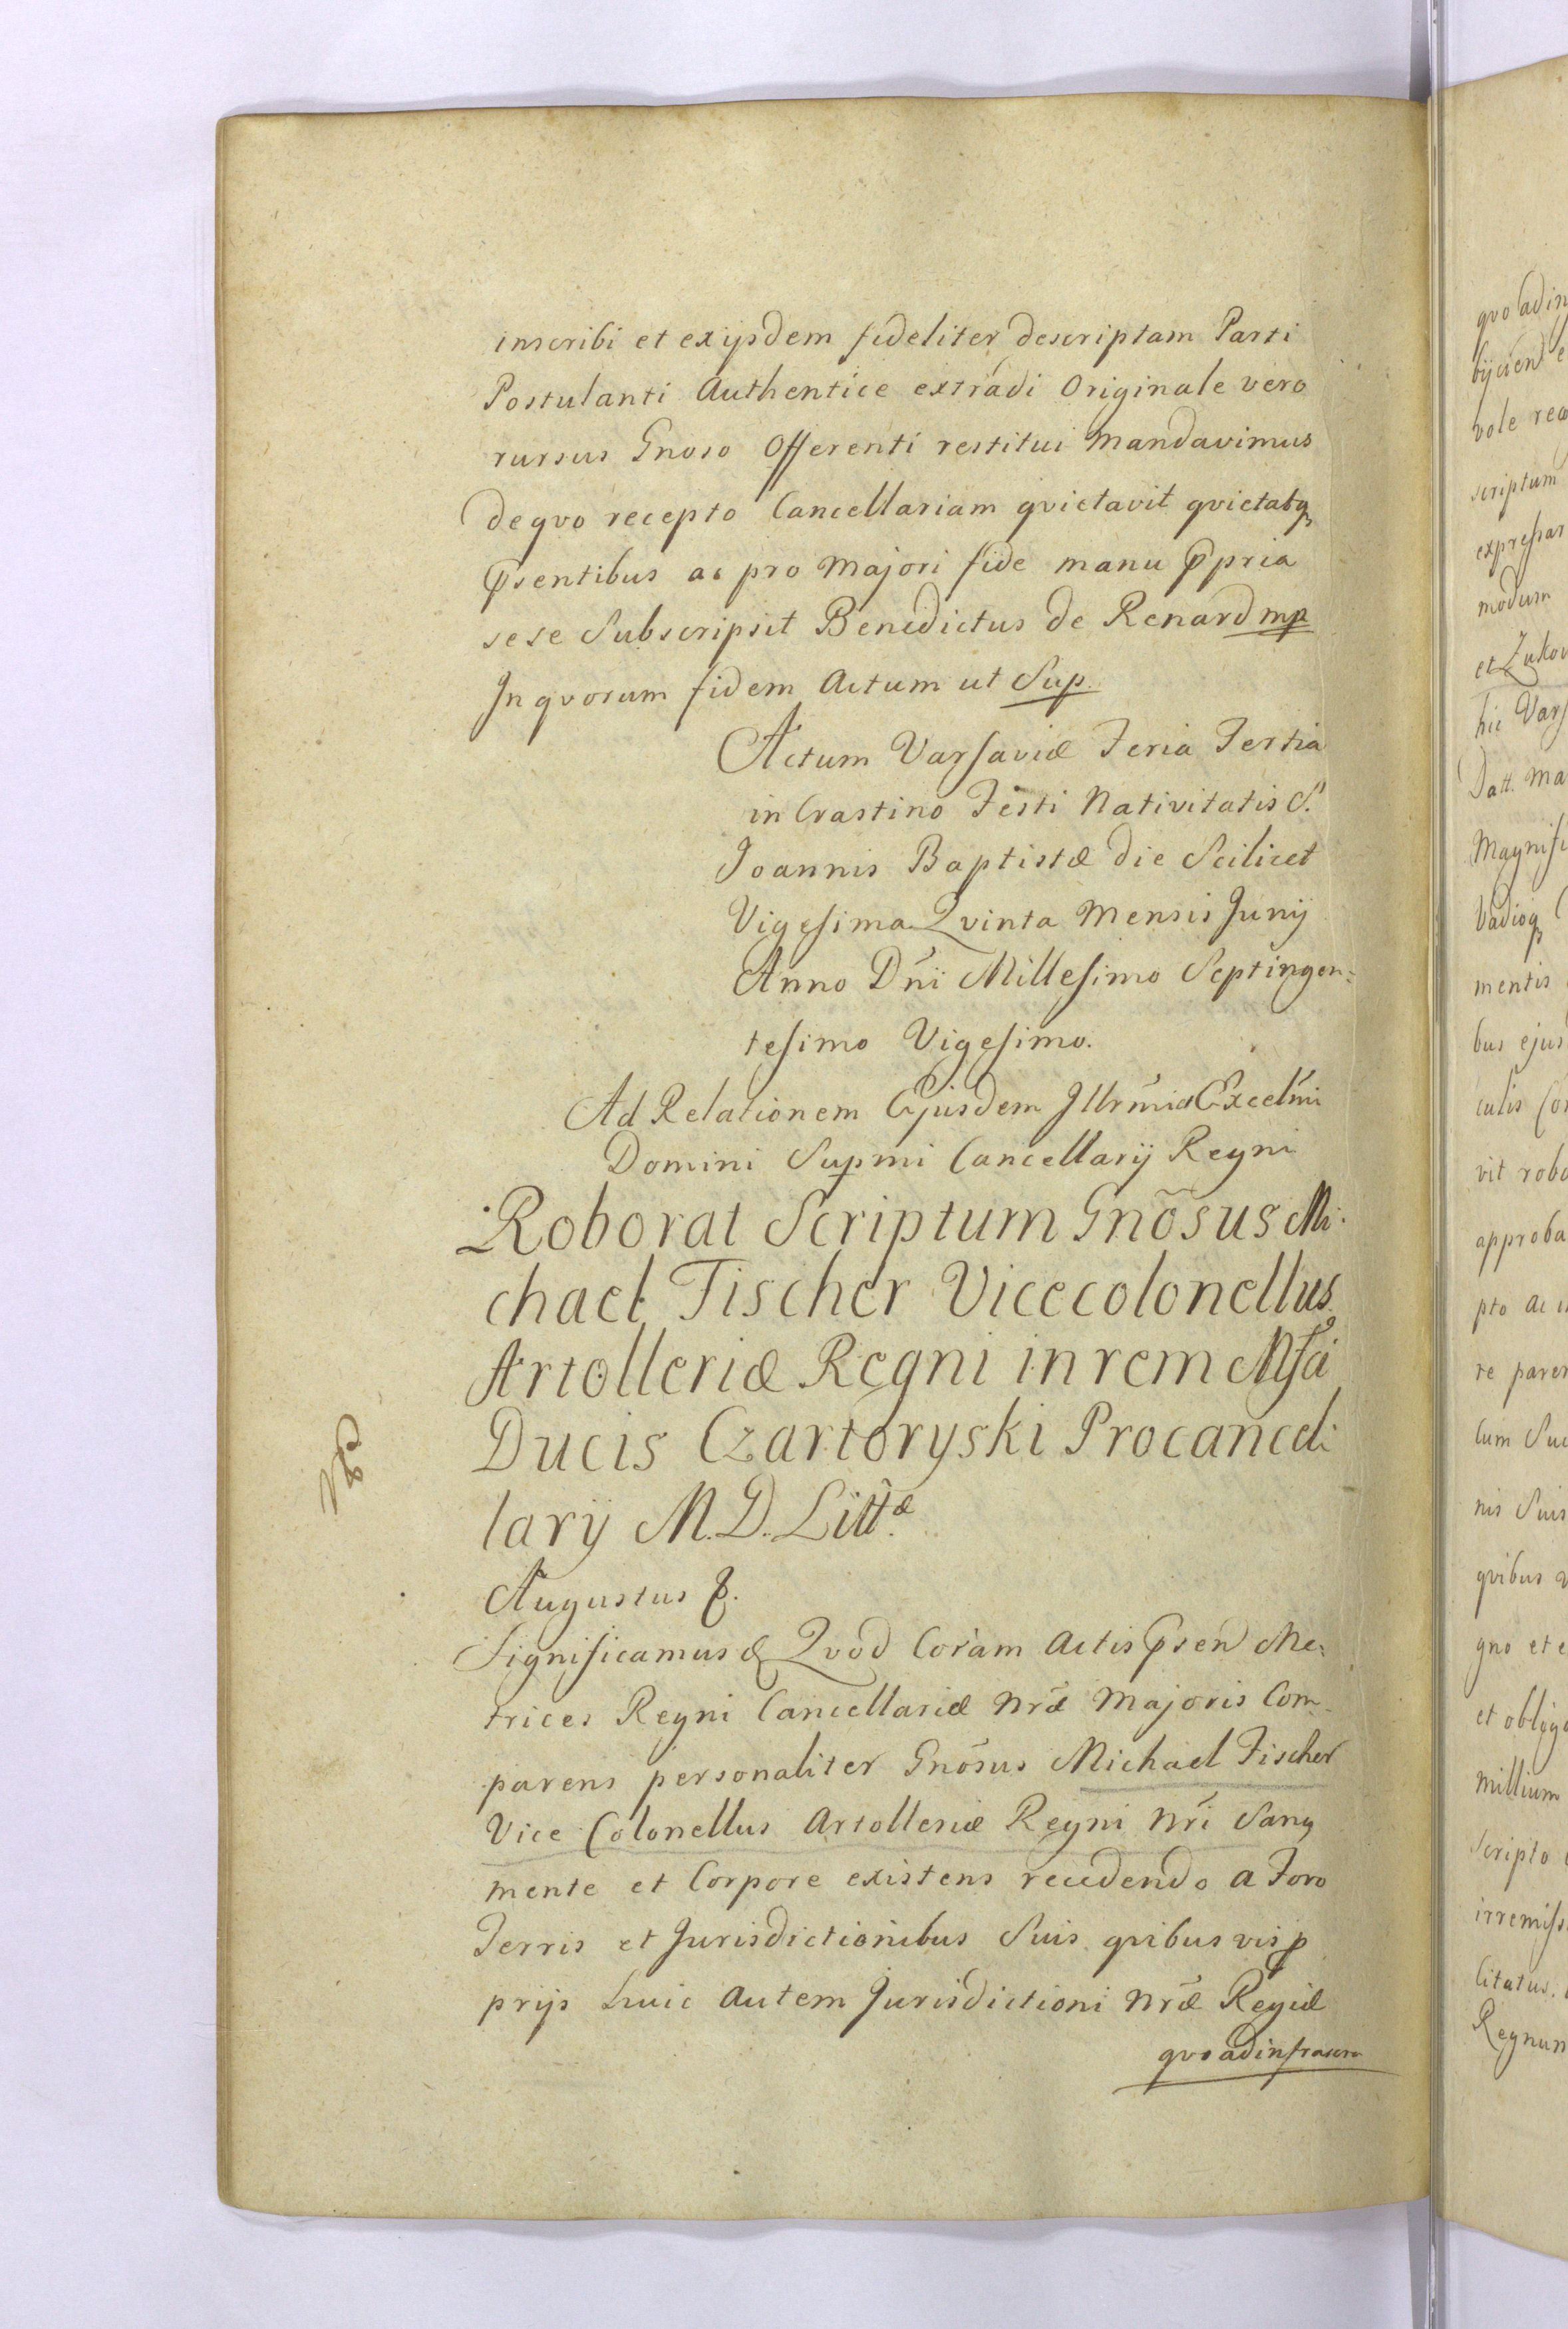 inscribi et exijsdem fideliter descriptam Parti
Postulanti Authentice extradi Originale vero
rursus Gnoso Offerenti restitui Mandavimus
deqvo recepto Cancellariam qvietavit qvietatq
Psentibus ac pro Majori fide manu Ppria
sese Subscripsit Benedictus de Renard mp
In qvorum fidem Actum ut Sup.
Actum Varsaviæ Feria Tertia
in Crastino Festi Nativitatis S.
Joannis Baptistæ die Scilicet
Vigesima Qvinta Mensis Junij
Anno Dñi Millesimo Septingen:
tesimo Vigesimo.
Ad Relationem Ejusdem Illrmi& Excellmi
Domini Supmi Cancellarij Regni
Roborat Scriptum Gnõsus Mi:
chael Fischer Vicecolonellus
Artolleriæ Regni in rem
Ducis Czartoryski Procancel:
larij M. D. Littæ
Augustus 2.
Significamus & Qvod Coram Actis Psen Me:
trices Regni Cancellariæ Nræ Majoris Com
parens personaliter Gnõsus Michael Fischer
Vice Colonellus Artolleriæ Regni Nri Sang
mente et Corpore existens recedendo a Foro
Terris et Jurisdictionibus Suis qvibus vis p
prijs huic Autem Jurisdictioni Nræ Regiæ
qvo adinfrascr
qvo adin
vole
scriptum
modum
et Zukov
hic Vars
Datt. Ma
Magnifi
Vadioq
mentis
bus ejus
culis Co
vit robo
approba
pto ac
re parer
cum Suc
nis Suis
qvibus
gno et e
et obliga
Millium
Scripto
irremiss
Citatus.
Regnum